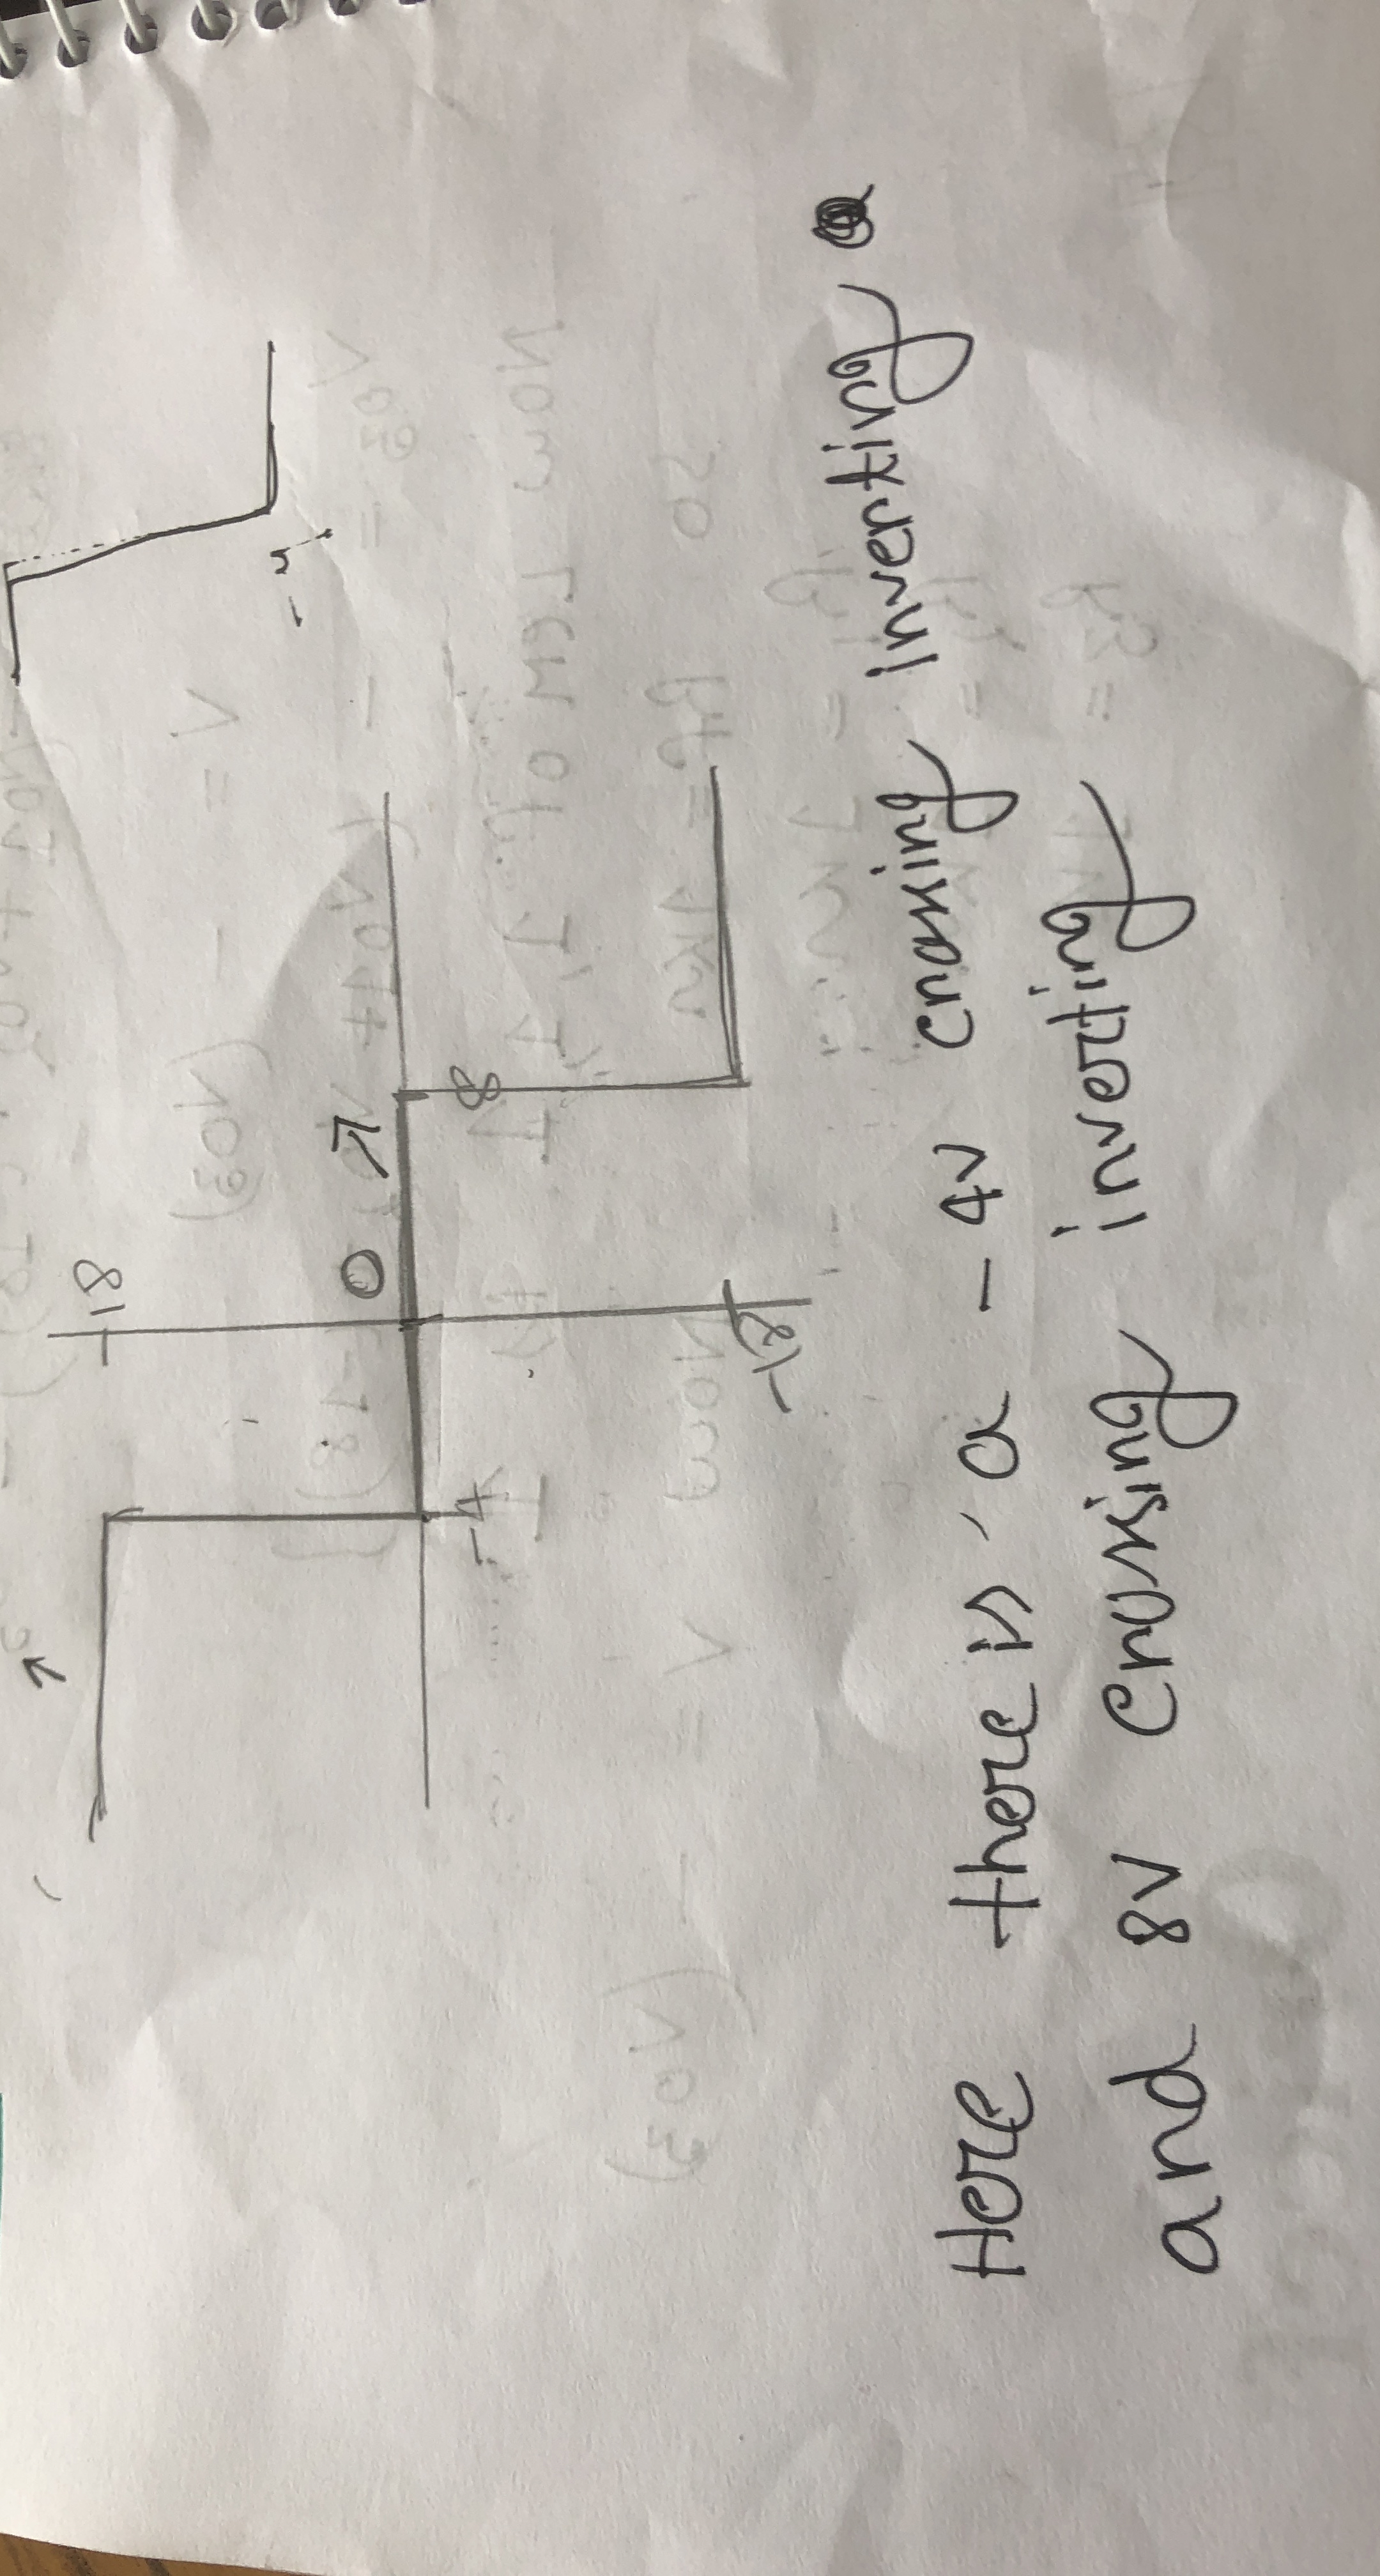 18
0
8
-4
-18
Here there is a - 4V crossing inverting
and 8V crossing inverting